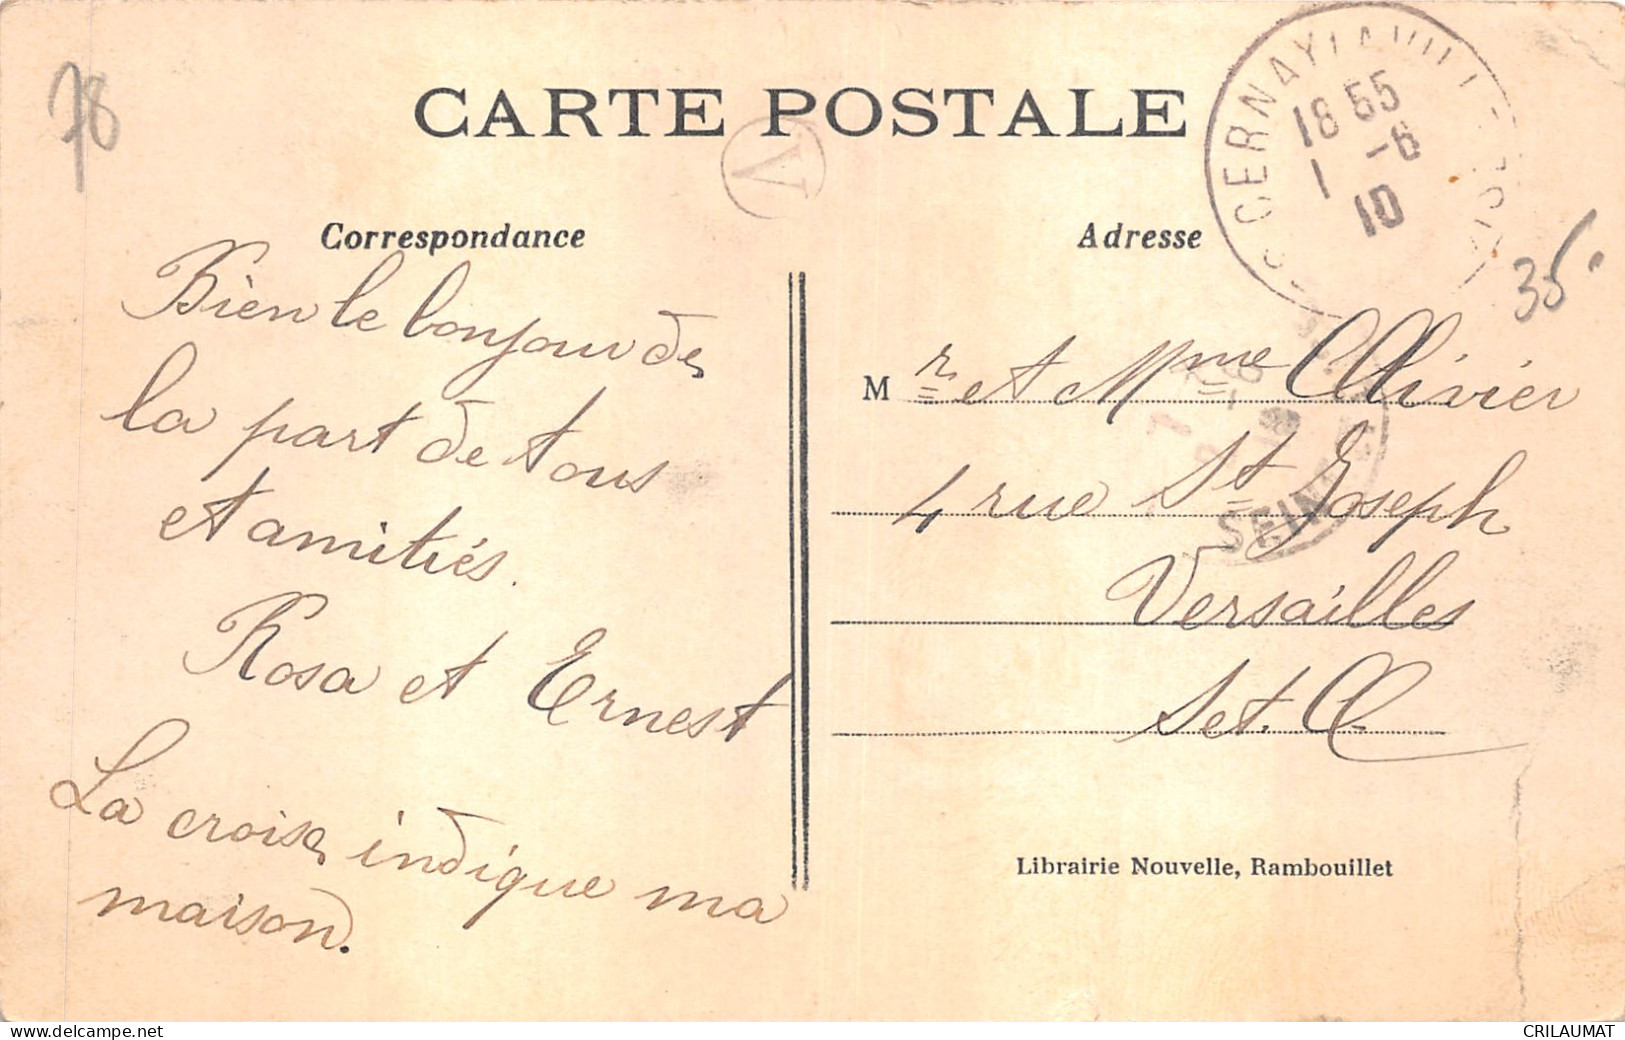 78
CARTE POSTALE
A
CERNAY LA VILLE
18 55
1 -6
10
Correspondance
Adresse
35
Bien le bonjour de
la part de tous
et amitiés.
Rosa et Ernest
La croix indique ma
maison.
M r et Mme Ollivier
4 rue St Joseph
Versailles
Set. O.
SEINE
Librairie Nouvelle, Rambouillet
www.delcampe.net
CRILAUMAT